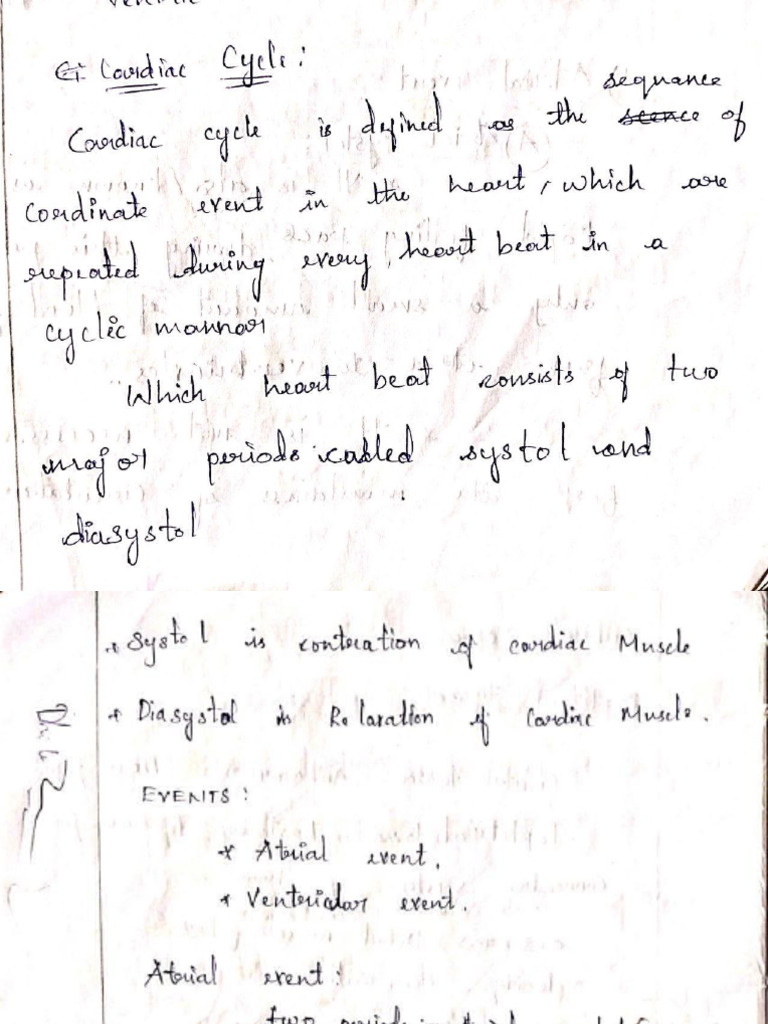 G: Cardiac Cycle:
Cardiac cycle is defined as the sequance of
Cordinate event in the heart, which are
repeated during every heart beat in a
cyclic mannar
Which heart beat consists of two
major periods called systol and
diasystol
* Systol is conteration of cardiac Muscle
* Diasystol is Relaration of Cardiac Muscle.
EVENTS:
* Aterial event.
* Ventericular event.
Aterial event:
two